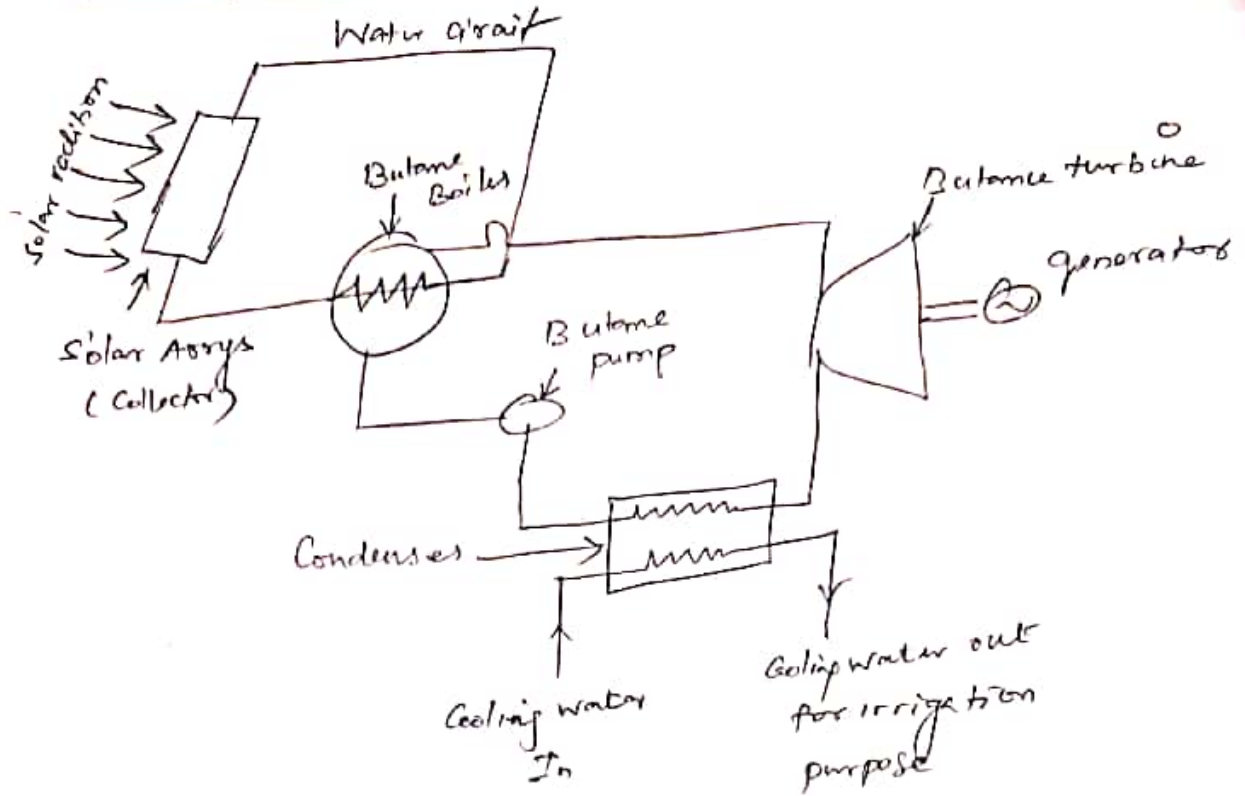 Water Circuit
Solar radition
Butane
Boiler
Butance turbine
generator
Butane
pump
Solar Aorys
(Collector)
Condenses
Cooling water
In
Colingwater out
for irrigation
purpose